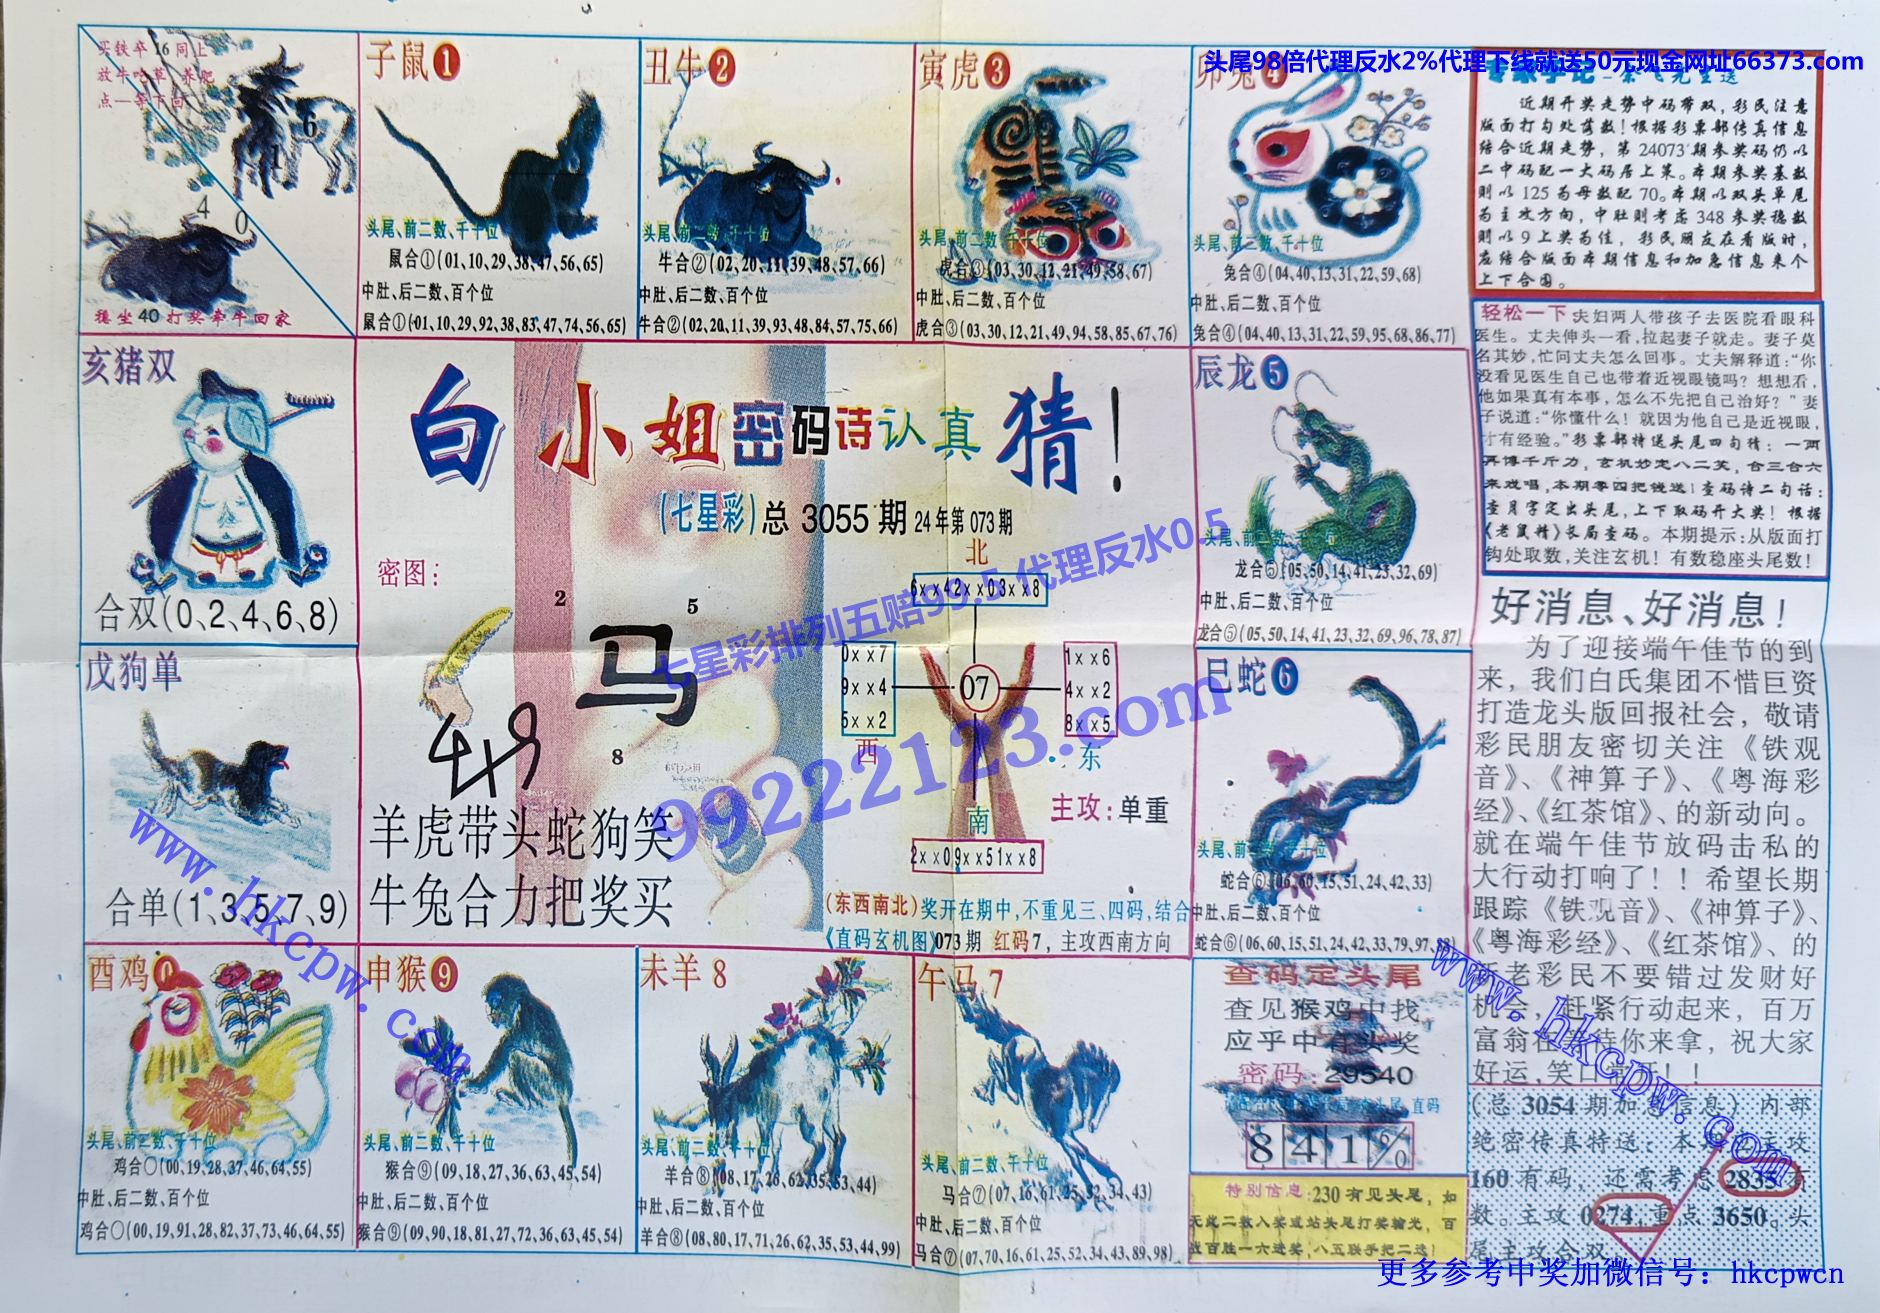 买铁卒 16 同上
放牛吃草 养肥
点一等下回
6
1
4
0
稳坐 40 打奖牵牛回家
子鼠❶
头尾、前二数、千十位
鼠合①(01,10,29,38,47,56,65)
中肚、后二数、百个位
鼠合①(01,10,29,92,38,83,47,74,56,65)
丑牛❷
头尾、前二数、千十位
牛合②(02,20,11,39,48,57,66)
中肚、后二数、百个位
牛合②(02,20,11,39,93,48,84,57,75,66)
寅虎❸
头尾、前二数、千十位
虎合③(03,30,12,21,49,58,67)
中肚、后二数、百个位
虎合③(03,30,12,21,49,94,58,85,67,76)
卯兔❹
头尾、前二数、千十位
兔合④(04,40,13,31,22,59,68)
中肚、后二数、百个位
兔合④(04,40,13,31,22,59,95,68,86,77)
头尾98倍代理反水2%代理下线就送50元现金网址66373.com
近期开奖走势中码带双，彩民注意
版面打勾处落数！根据彩票部传真信息
结合近期走势，第 24073 期参奖码仍以
二中码配一大码居上策。本期参奖基数
则以 125 为母数配 70。本期以双头单尾
为主攻方向，中肚则考虑 348 参奖稳数
则以 9 上奖为佳，彩民朋友在看版时，
应结合版面本期信息和加急信息来个
上下合围。
轻松一下：夫妇两人带孩子去医院看眼科
医生。丈夫伸头一看，拉起妻子就走。妻子莫
名其妙，忙问丈夫怎么回事。丈夫解释道：“你
没看见医生自己也带着近视眼镜吗？想想看，
他如果真有本事，怎么不先把自己治好？”妻
子说道：“你懂什么！就因为他自己是近视眼，
才有经验。”彩票部特送头尾四句特：一两
再博千斤力，玄机妙定八二笑，合三合六
来戏唱，本期零四把钱送！查码诗二句话：
查月字定出头尾，上下取码开大奖！根据
《老鼠精》长局查码。本期提示：从版面打
钩处取数，关注玄机！有数稳座头尾数！
亥猪双
合双(0、2、4、6、8)
戊狗单
合单(1、3、5、7、9)
白小姐密码诗认真猜！
(七星彩)总 3055 期 24 年第 073 期
密图：
2
5
马
8
4x9
羊虎带头蛇狗笑
牛兔合力把奖买
北
6××42××03××8
0××7
9××4
5××2
西
07
1××6
4××2
8××5
东
南
2××09××51××8
主攻：单重
(东西南北)奖开在期中，不重见三、四码，结合
《直码玄机图》073 期 红码 7，主攻西南方向
七星彩排列五赔99.5 代理反水0.5
99222123.com
辰龙❺
龙合⑤(05,50,14,41,23,32,69)
中肚、后二数、百个位
龙合⑤(05,50,14,41,23,32,69,96,78,87)
巳蛇❻
蛇合⑥(06,60,15,51,24,42,33)
中肚、后二数、百个位
好消息、好消息！
为了迎接端午佳节的到
来，我们白氏集团不惜巨资
打造龙头版回报社会，敬请
彩民朋友密切关注《铁观
音》、《神算子》、《粤海彩
经》、《红茶馆》、的新动向。
就在端午佳节放码击私的
大行动打响了！！希望长期
跟踪《铁观音》、《神算子》、
《粤海彩经》、《红茶馆》、的
新老彩民不要错过发财好
机会，赶紧行动起来，百万
富翁在等待你来拿，祝大家
好运，笑口常开！！
酉鸡
头尾、前二数、千十位
鸡合〇(00,19,28,37,46,64,55)
中肚、后二数、百个位
鸡合〇(00,19,91,28,82,37,73,46,64,55)
申猴❾
头尾、前二数、千十位
猴合⑨(09,18,27,36,63,45,54)
中肚、后二数、百个位
猴合⑨(09,90,18,81,27,72,36,63,45,54)
未羊 8
头尾、前二数、千十位
羊合⑧(08,17,26,62,35,53,44)
中肚、后二数、百个位
羊合⑧(08,80,17,71,26,62,35,53,44,99)
午马 7
头尾、前二数、千十位
马合⑦(07,16,61,25,52,34,43)
中肚、后二数、百个位
马合⑦(07,70,16,61,25,52,34,43,89,98)
查码定头尾
查见猴鸡中找
应乎中有头奖
密码：29540
8 4 1 6/0
特别信息：230 有见头尾，如
无此二数入奖或站头尾打奖输光，百
战百胜一六进奖，八五联手把二选！
(总 3054 期加急信息) 内部
绝密传真特送：本期主攻
160 有码，还需考虑 2835 有
数。主攻 0274，重点 3650。头
尾主攻合双。
www.hkcpw.com
www.hkcpw.com
更多参考中奖加微信号：hkcpwcn